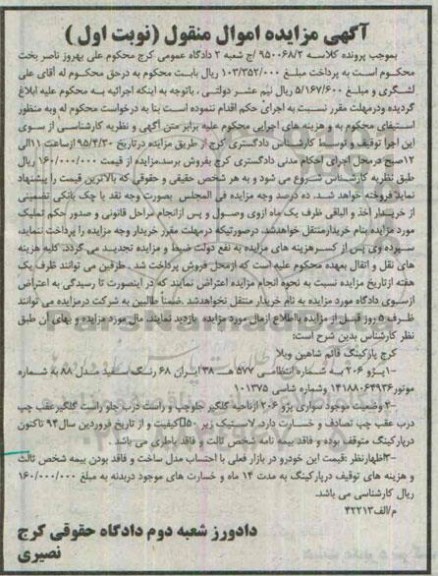 آگهی مزایده اموال منقول (نوبت اول)
بموجب پرونده کلاسه ۹۵۰۰۶۸/۲ /ج شعبه ۲ دادگاه عمومی کرج محکوم علی بهروز ناصر بخت
محکوم است به پرداخت مبلغ ۱۰۳/۳۵۲/۰۰۰ ریال بابت محکوم به درحق محکوم له آقای علی
لشگری و مبلغ ۵/۱۶۷/۶۰۰ ریال نیم عشر دولتی ، باتوجه به اینکه اجرائیه به محکوم علیه ابلاغ
گردیده ودرمهلت مقرر نسبت به اجرای حکم اقدام ننموده است بنا به درخواست محکوم له وبه منظور
استیفای محکوم به و هزینه های اجرایی محکوم علیه برابر متن آگهی و نظریه کارشناسی از سوی
این اجرا توقیف و توسط کارشناس دادگستری کرج از طریق مزایده درتاریخ ۹۵/۴/۳۰ ازساعت ۱۱الی
۱۲صبح درمحل اجرای احکام مدنی دادگستری کرج بفروش برسد.مزایده از قیمت ۱۶۰/۰۰۰/۰۰۰ ریال
طبق نظریه کارشناس شروع می شود و به هر شخص حقیقی و حقوقی که بالاترین قیمت را پیشنهاد
نماید فروخته خواهد شد. ده درصد وجه مزایده فی المجلس بصورت وجه نقد یا چک بانکی تضمینی
از خریدار اخذ و الباقی ظرف یک ماه ازوی وصول و پس ازانجام مراحل قانونی و صدور حکم تملیک
مورد مزایده بنام خریدارمنتقل خواهدشد. درصورتیکه درمهلت مقرر خریدار وجه مزایده را پرداخت ننماید،
سپرده وی پس از کسرهزینه های مزایده به نفع دولت ضبط و مزایده تجدید می گردد. کلیه هزینه
های نقل و انتقال بعهده محکوم علیه است که ازمحل فروش پرداخت شد . طرفین می توانند ظرف یک
هفته ازتاریخ مزایده نسبت به نحوه انجام مزایده اعتراض نمایند که در اینصورت تا رسیدگی به اعتراض
ازسوی دادگاه مورد مزایده به نام خریدار منتقل نخواهدشد .ضمناً طالبین به شرکت درمزایده می توانند
ظرف ۵ روز قبل از مزایده بااطلاع ازمال مورد مزایده بازدید نمایند. مال مورد مزایده و بهای آن طبق
نظر کارشناس بدین شرح است:
کرج پارکینگ قائم شاهین ویلا
۱-پژو ۲۰۶ به شماره انتظامی ۵۷۷ هـ ۳۸ ایران ۶۸ رنگ سفید مدل ۸۸ به شماره
موتور۱۴۱۸۸۰۶۴۹۳۶ وشماره شاسی ۱۰۱۳۷۵
۲-وضعیت موجود سواری پژو ۲۰۶ ازناحیه گلگیر جلوچپ و راست درب جلو راست گلگیر عقب چپ
درب عقب چپ تصادف و خسارت دارد. لاستیک زیر ۵۰%کیفیت و از تاریخ فروردین سال۹۴ تاکنون
درپارکینگ متوقف بوده و فاقد بیمه نامه شخص ثالث و فاقد باطری می باشد .
۳-اظهارنظر :قیمت این خودرو در بازار فعلی با احتساب مدل ساخت و فاقد بودن بیمه شخص ثالث
و هزینه های توقیف درپارکینگ به مدت ۱۴ ماه و خسارت های موجود دربدنه به مبلغ ۱۶۰/۰۰۰/۰۰۰
ریال کارشناسی می باشد.
م/الف۴۲۲۱۳
دادورز شعبه دوم دادگاه حقوقی کرج
نصیری